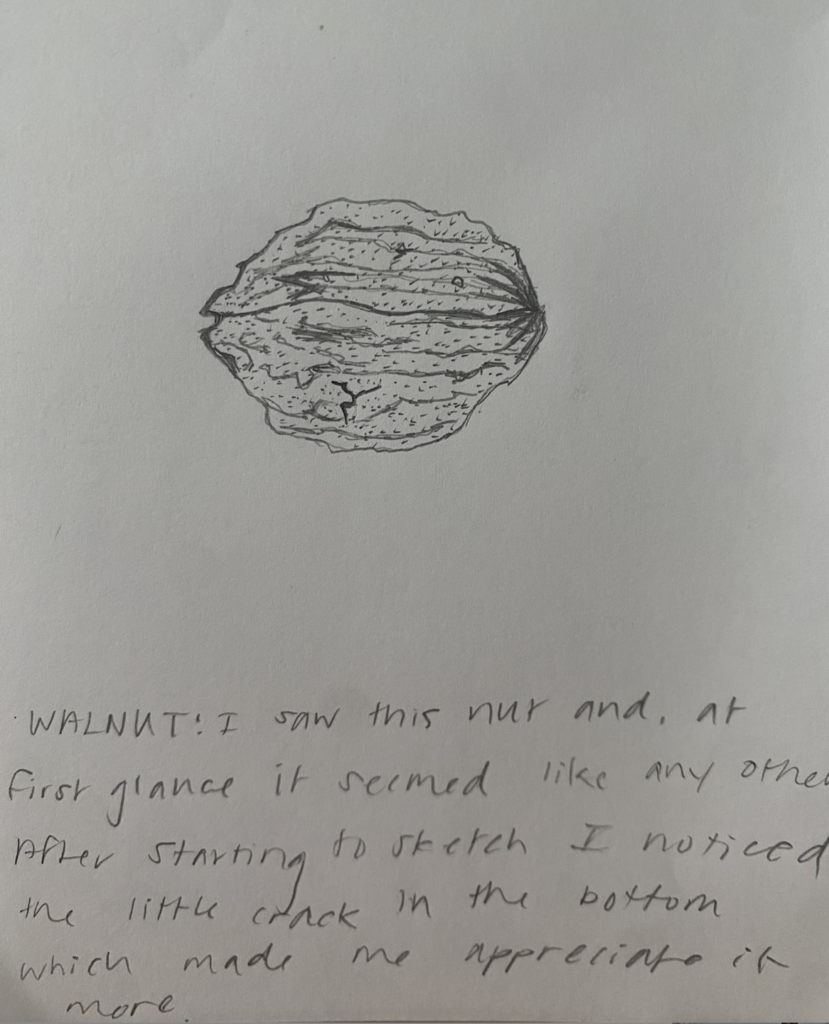 WALNUT: I saw this nut and, at
first glance it seemed like any other
After starting to sketch I noticed
the little crack in the bottom
which made me appreciate it
more.